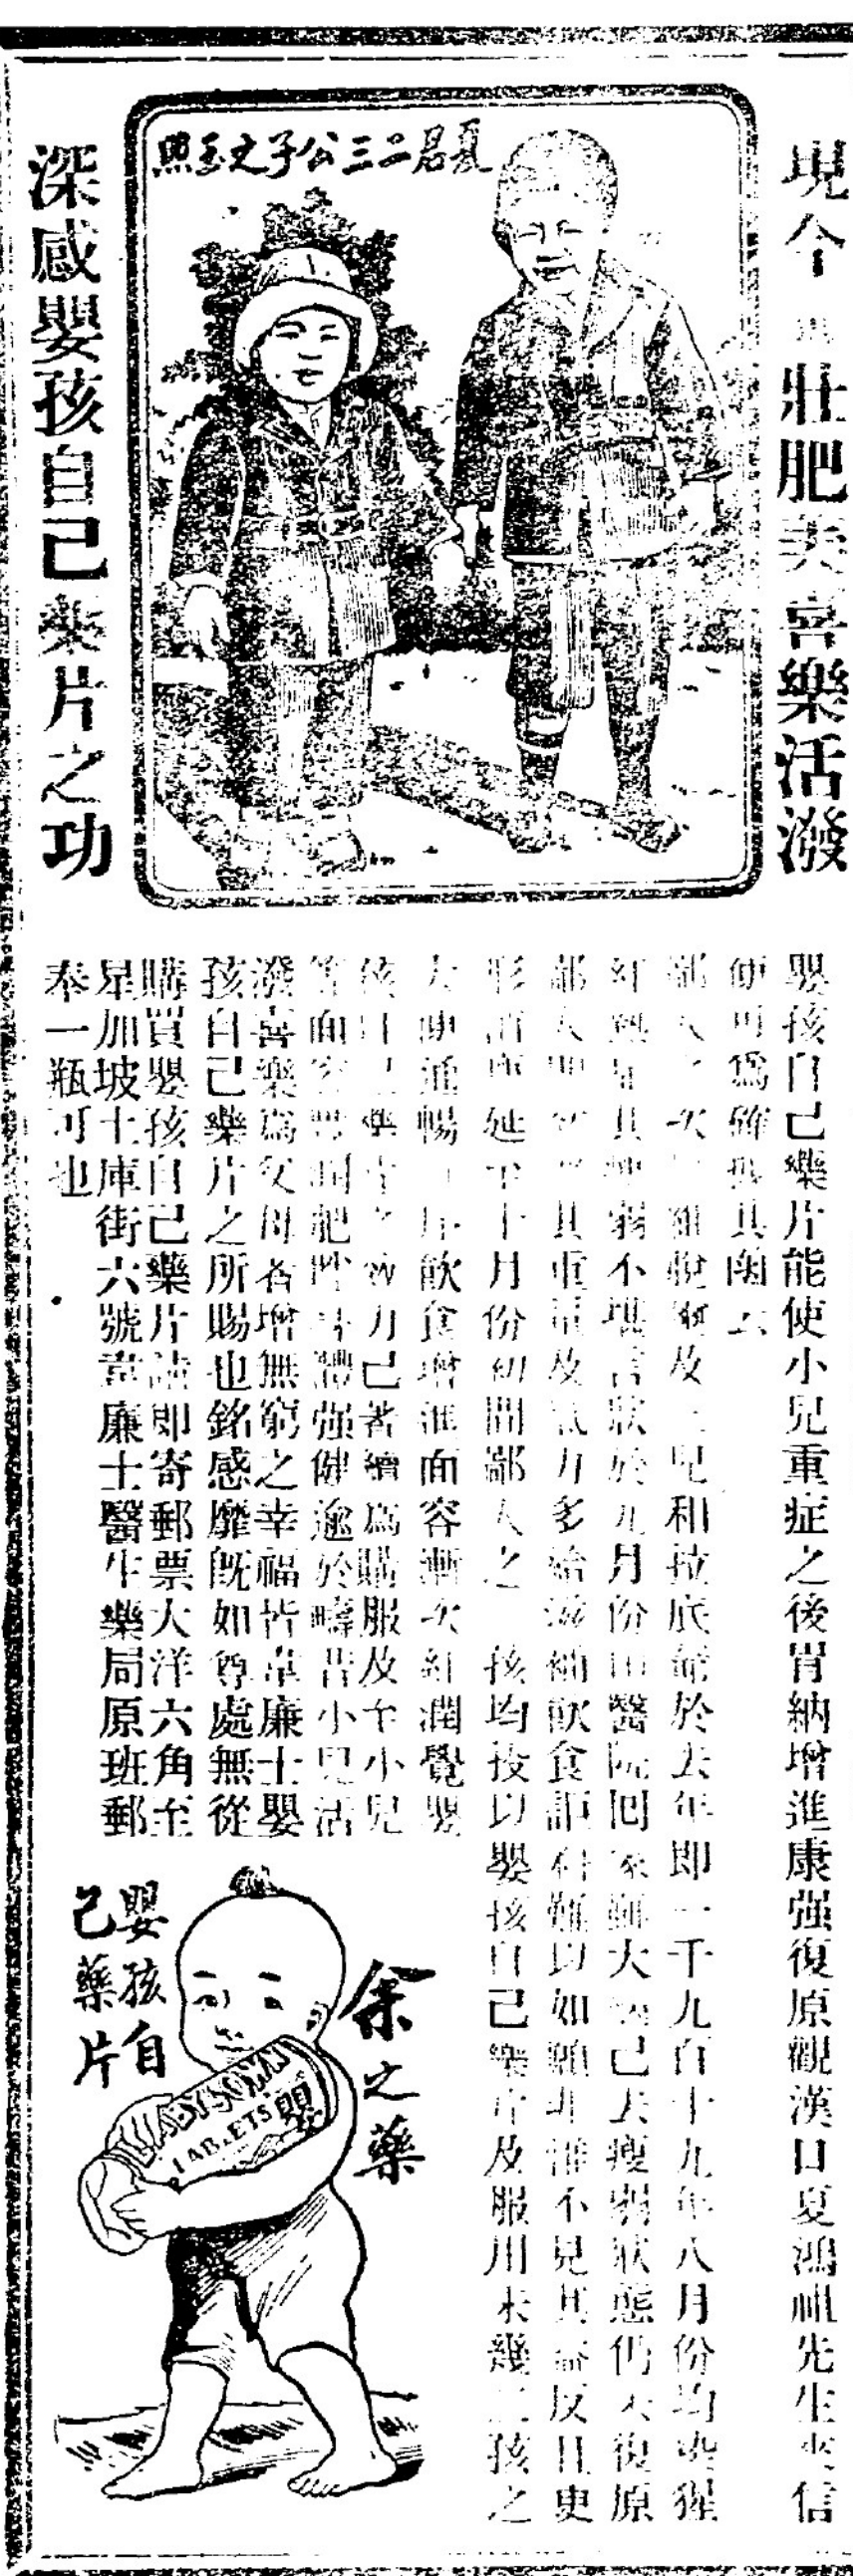 現今壯肥美喜樂活潑
夏君二三公子之玉照
深感嬰孩自己藥片之功
嬰孩自己藥片能使小兒重症之後胃納增進康强復原觀漢口夏鴻祖先生來信
便可爲確據其函云
鄙人 次 雅 及 兒和 底 於去年即一千九百十九年八月份均染猩
紅熱 其 弱不堪言狀於九月份由醫院回家 大 已去瘦弱狀態仍未復原
鄙人 其重量及氣力多給滋補飲食詎料難以如願非惟不見其益反且更
形 延至十月份初間鄙人之 孩均投以嬰孩自己藥片及服用未幾二孩之
大便通暢 飲食增進面容漸次紅潤覺嬰
孩自己藥片之效力已著續爲購服及至小兒
等面容 潤肥 體强健逾於疇昔小兒活
潑喜樂爲父母者增無窮之幸福皆韋廉士嬰
孩自己藥片之所賜也銘感靡既如尊處無從
購買嬰孩自己藥片請即寄郵票大洋六角至
星加坡土庫街六號韋廉士醫生藥局原班郵
奉一瓶可也
余之藥
嬰孩自
己藥片
BABYSOWN
TABLETS
嬰